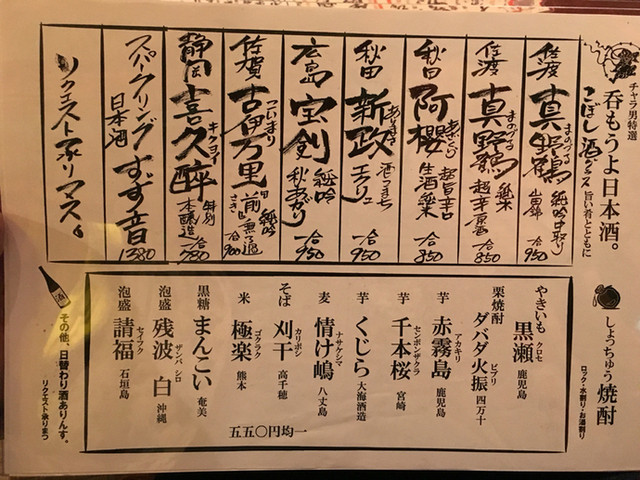 チャラ男特選
呑もうよ日本酒。
こぼし酒グラス 旨い肴とともに
佐渡 真野鶴 まのづる 純吟中取り 山田錦 一合 950
佐渡 真野鶴 まのづる 純米 超辛原酒 一合 850
秋田 阿櫻 あざくら 超旨辛口 生酒純米 一合 850
秋田 新政 あらまさ エクリュ 一合 950
広島 宝剣 純吟 秋あがり 一合 950
佐賀 古伊万里 こいまり 前 さき 純吟 一合 900
静岡 喜久醉 キクヨイ 特別本醸造 一合 780
スパークリング日本酒 すず音 1380
リクエスト承りマス。
しょっちゅう焼酎
ロック・水割り・お湯割り
やきいも 黒瀬 クロセ 鹿児島
栗焼酎 ダバダ火振 ビブリ 四万十
芋 赤霧島 アカキリ 鹿児島
芋 千本桜 センボンザクラ 宮崎
芋 くじら 大海酒造
麦 情け嶋 ナサケシマ 八丈島
そば 刈干 カリボシ 高千穂
米 極楽 ゴクラク 熊本
黒糖 まんこい 奄美
泡盛 残波 白 ザンパ シロ 沖縄
泡盛 請福 セイフク 石垣島
五五〇円均一
その他、日替わり酒ありんす。
リクエスト承りまつ